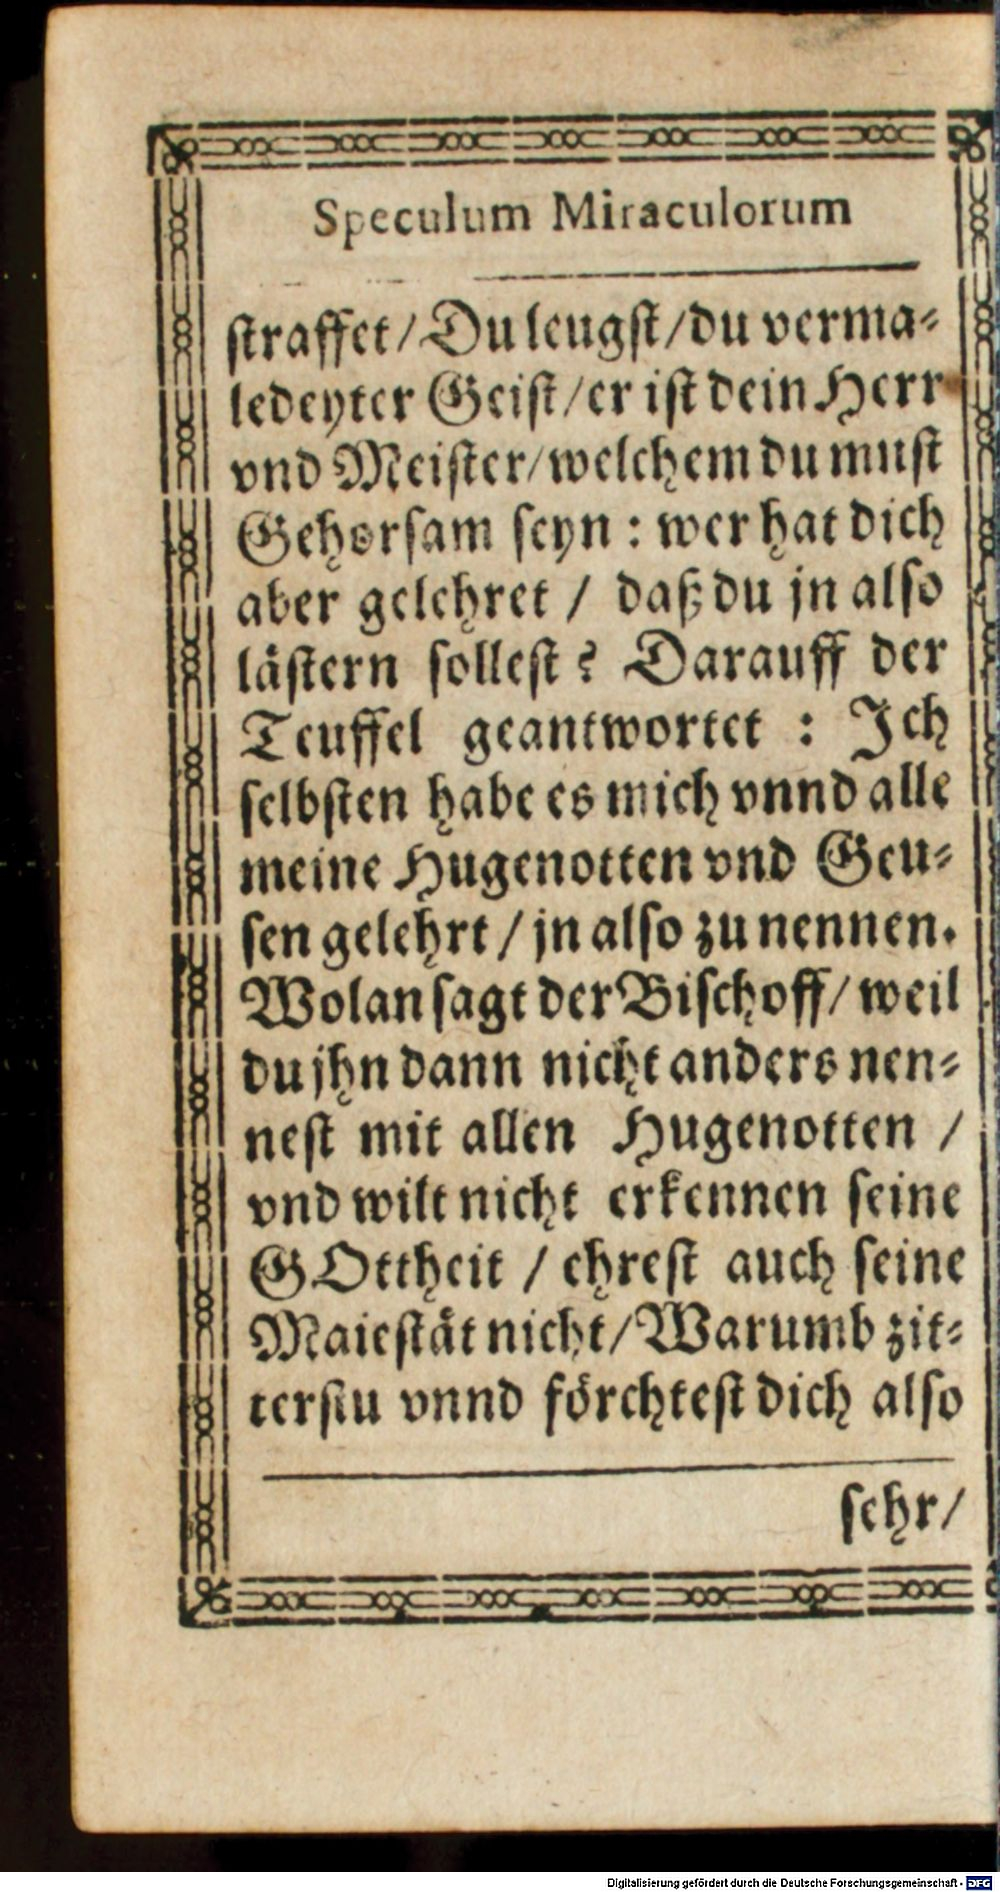 Speculum Miraculorum
straffet / Du leugst / du verma-
ledeyter Geist / er ist dein Herr
vnd Meister / welchem du must
Gehorsam seyn : wer hat dich
aber gelehret / daß du jn also
lästern sollest ? Darauff der
Teuffel geantwortet : Ich
selbsten habe es mich vnnd alle
meine Hugenotten vnd Geu-
sen gelehrt / jn also zu nennen.
Wolan sagt der Bischoff / weil
du jhn dann nicht anders nen-
nest mit allen Hugenotten /
vnd wilt nicht erkennen seine
GOttheit / ehrest auch seine
Maiestät nicht / Warumb zit-
terstu vnnd förchtest dich also
sehr /
Digitalisierung gefördert durch die Deutsche Forschungsgemeinschaft - DFG